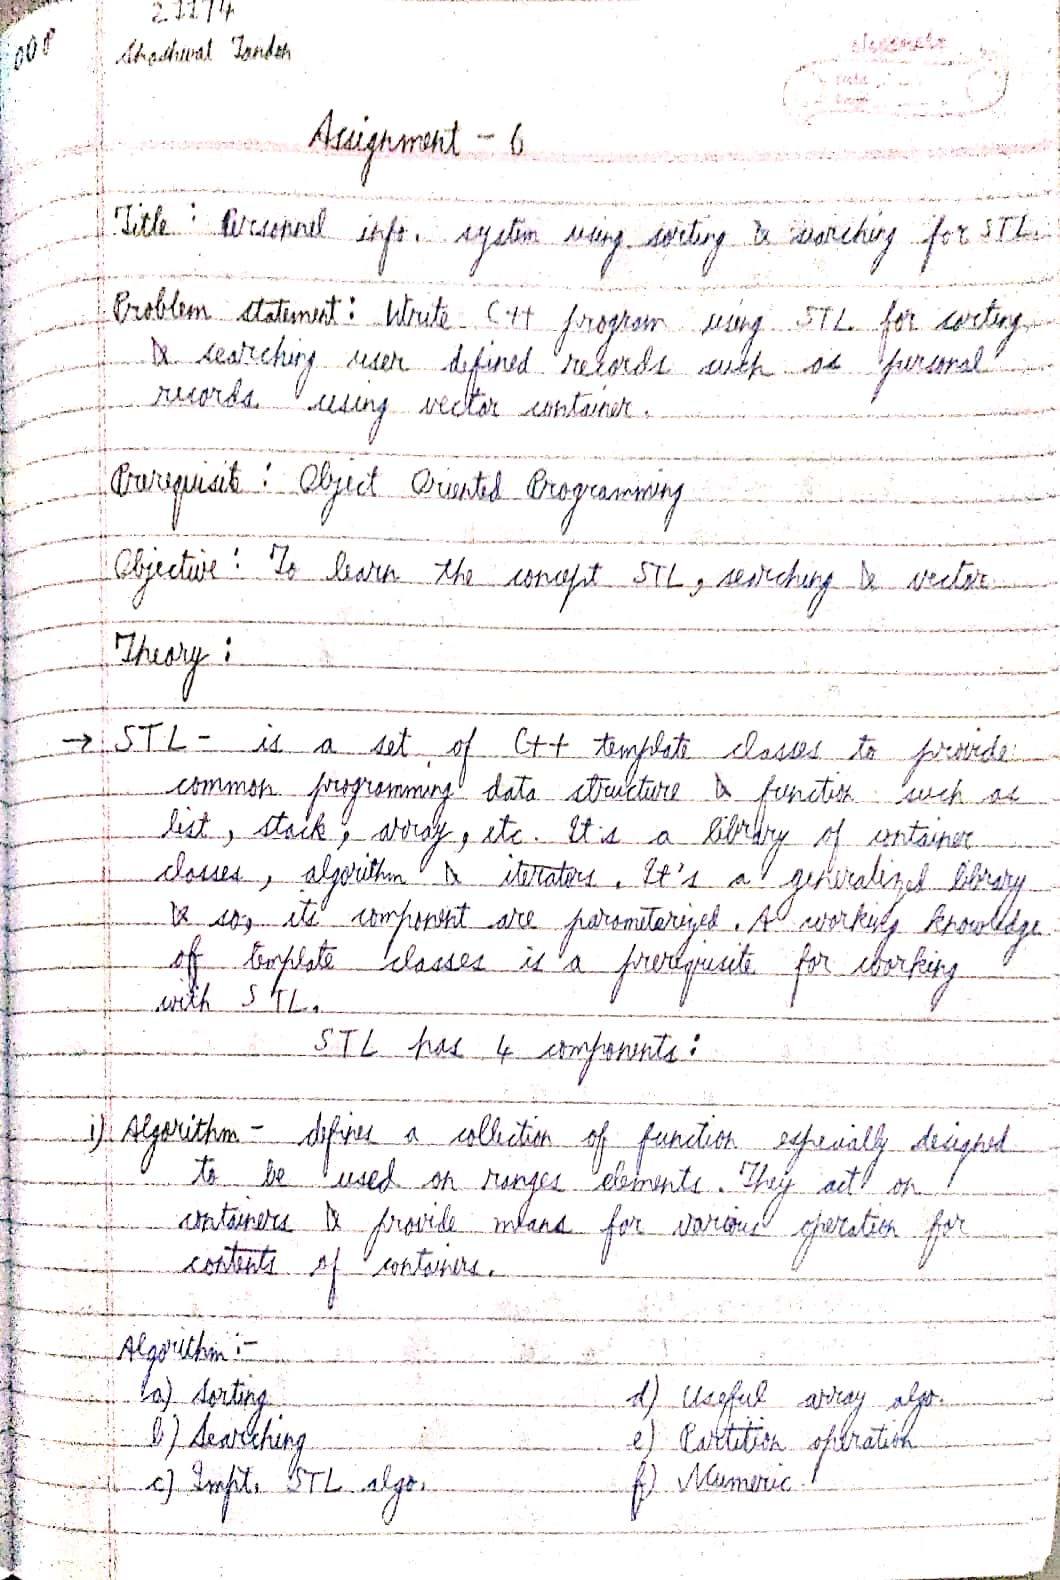 21174
Shashwat Tandon
Assignment - 6
Title : Personnel info. system using sorting & searching for STL.
Problem statement : Write C++ program using STL for sorting
& searching user defined records such as personal
records using vector container.
Prerequisite : Object Oriented Programming
Objective : To learn the concept STL, searching & vector
Theory :
→ STL - is a set of C++ template classes to provide
common programming data structure & function such as
list, stack, array, etc. It's a library of container
classes, algorithm & iterators. It's a generalized library
& so, its component are parameterized. A working knowledge
of template classes is a prerequisite for working
with STL.
STL has 4 components :
i) Algorithm - defines a collection of function especially designed
to be used on ranges elements. They act on
containers & provide means for various operation for
contents of containers.
Algorithm :-
a) Sorting
b) Searching
c) Impt. STL algo.
d) Useful array algo.
e) Partition operation
f) Numeric